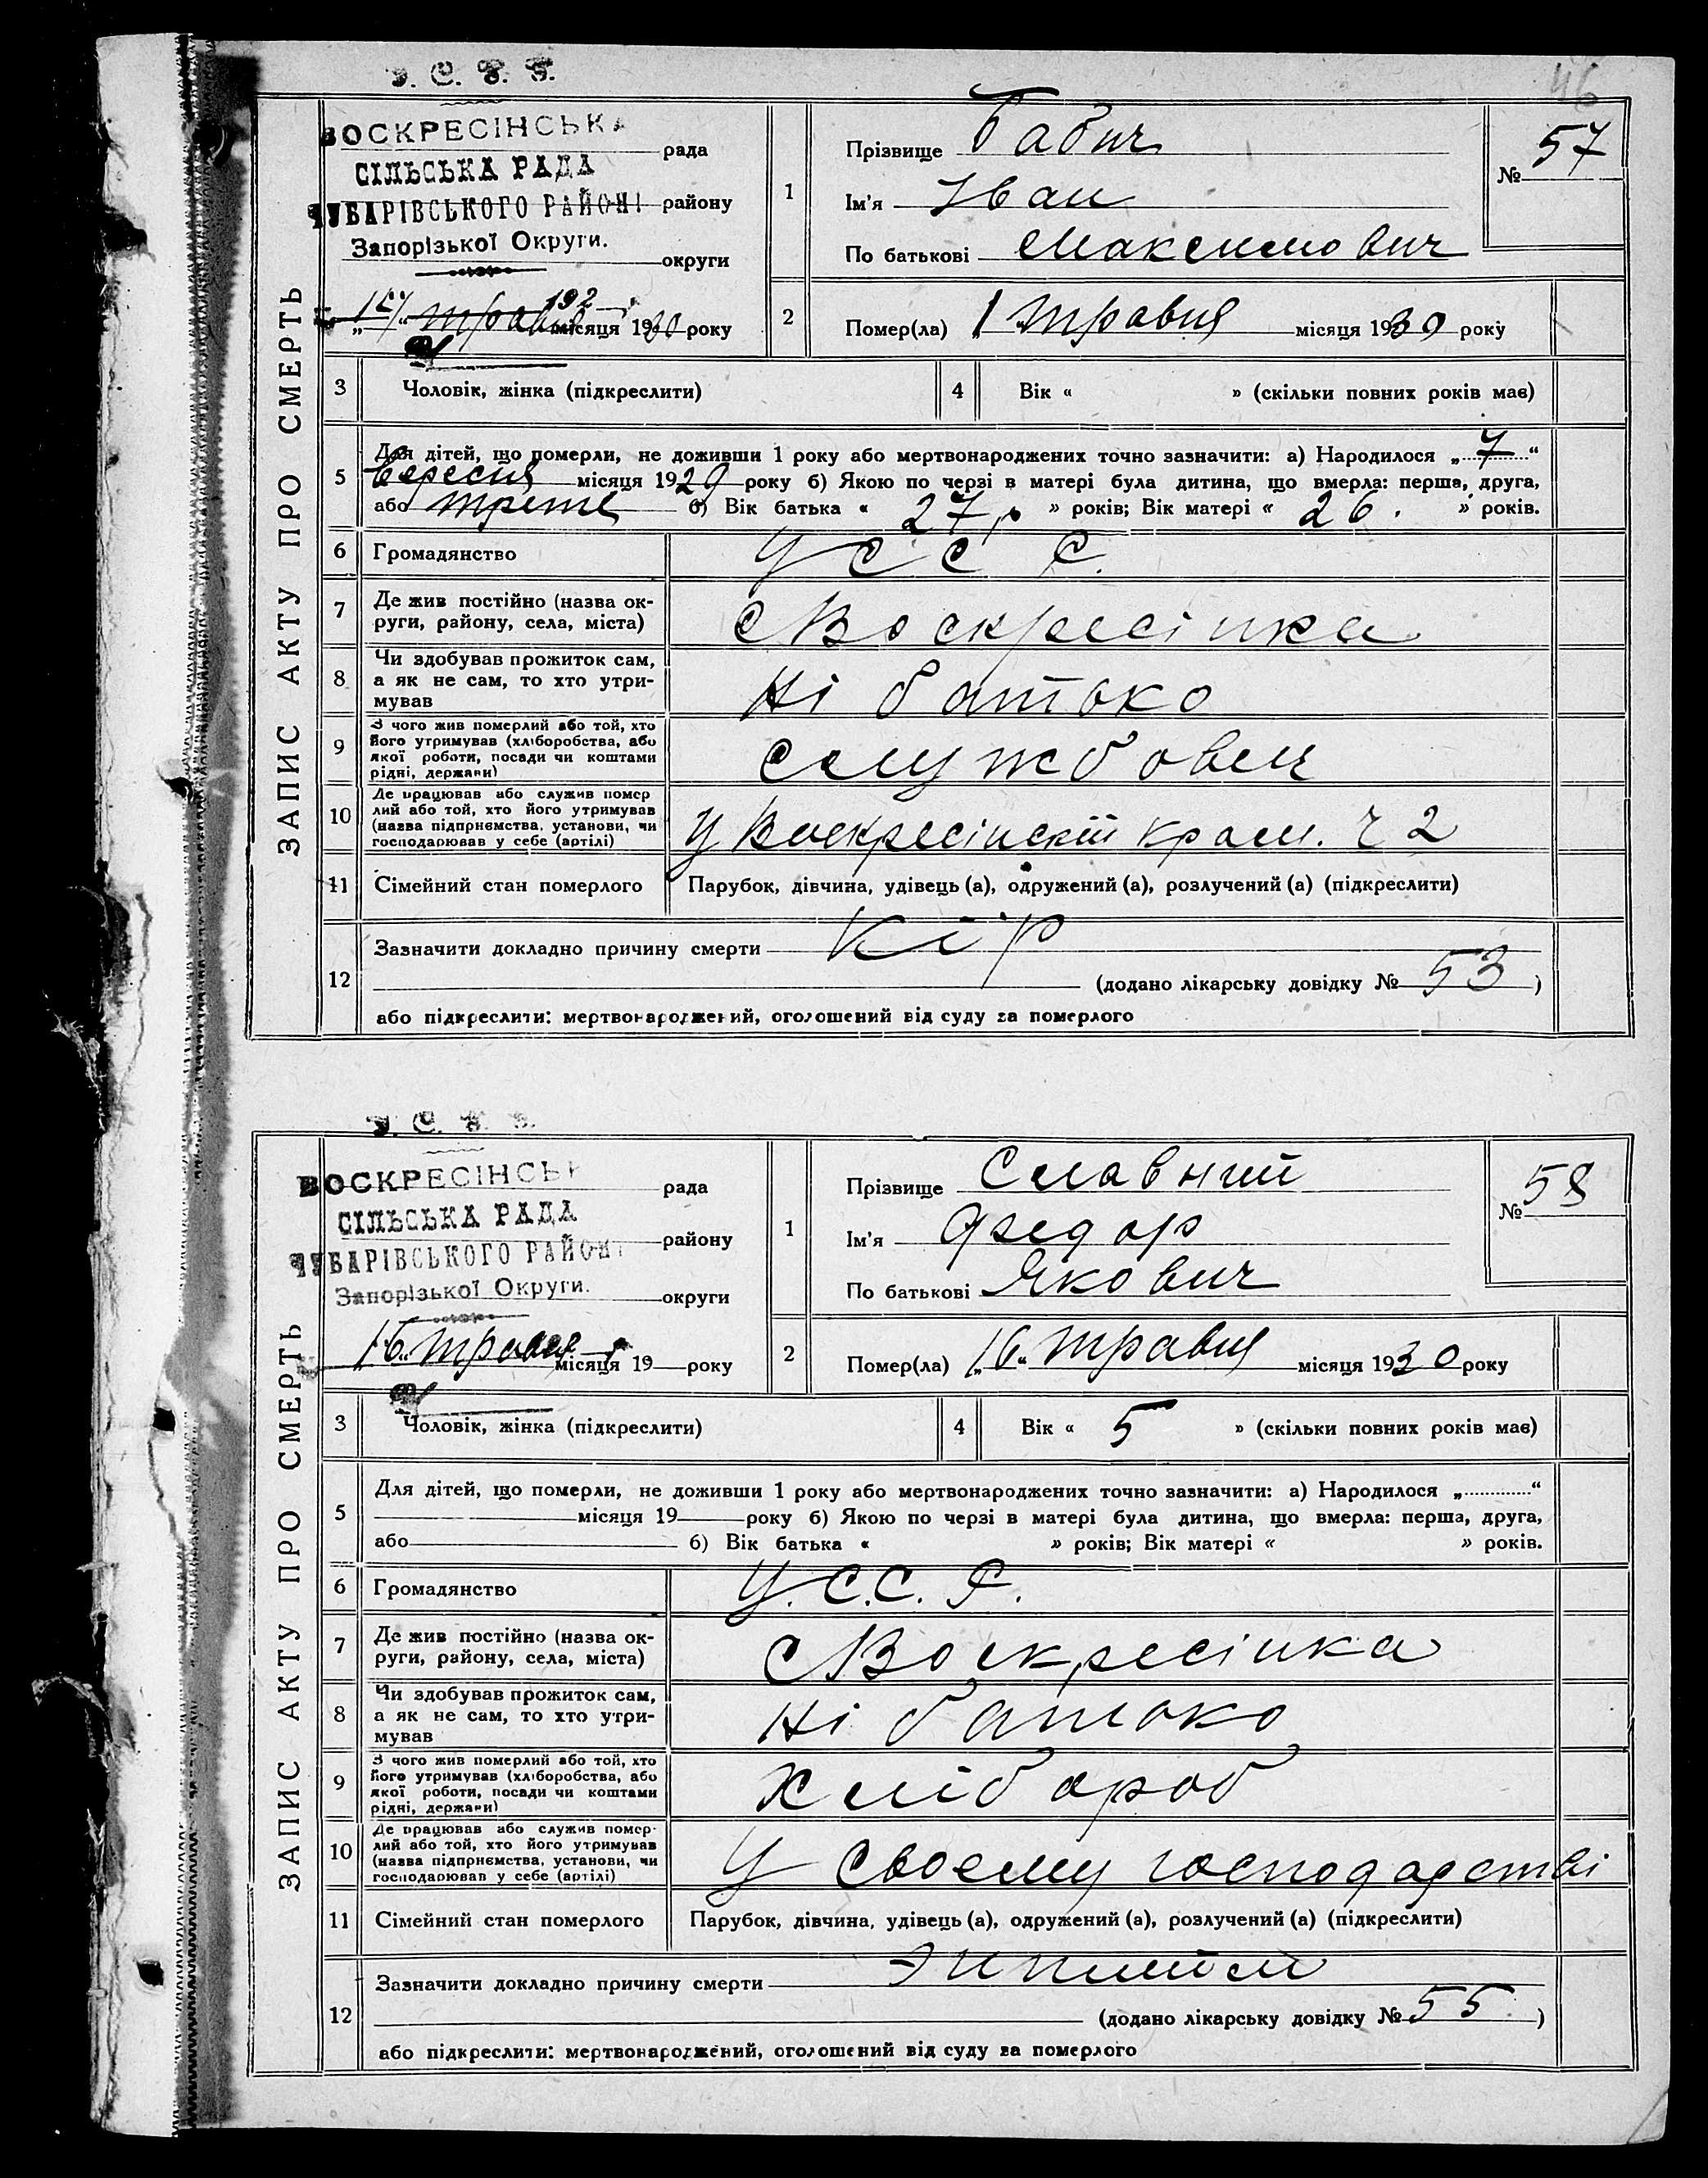 У. С. Р. Р.
46
ВОСКРЕСІНСЬКА рада
СІЛЬСЬКА РАДА
ЧУБАРІВСЬКОГО РАЙОНУ району
Запорізької Округи.
округи
192
травня місяця 1930 року
ЗАПИС АКТУ ПРО СМЕРТЬ
1 Прізвище Бабич
№ 57
Ім'я Іван
По батькові Максимович
2 Помер(ла) 1 травня місяця 1930 року
3 Чоловік, жінка (підкреслити)
4 Вік « » (скільки повних років має)
5 Для дітей, що померли, не доживши 1 року або мертвонароджених точно зазначити: а) Народилося „ 7 “
вересня місяця 1929 року б) Якою по черзі в матері була дитина, що вмерла: перша, друга,
або третє б) Вік батька « 27 р » років; Вік матері « 26. » років.
6 Громадянство УССР.
7 Де жив постійно (назва ок-
руги, району, села, міста) с Воскресінка
8 Чи здобував прожиток сам,
а як не сам, то хто утри-
мував Ні батько
9 З чого жив померлий або той, хто
його утримував (хліборобства, або
якої роботи, посади чи коштами
рідні, держави) службовец
10 Де працював або служив помер
лий або той, хто його утримував
(назва підприємства, установи, чи
господарював у себе (артілі) У Воскресінскій крам. ч 2
11 Сімейний стан померлого Парубок, дівчина, удівець (а), одружений (а), розлучений (а) (підкреслити)
12 Зазначити докладно причину смерти Кір
(додано лікарську довідку № 53 )
або підкреслити: мертвонароджений, оголошений від суду за померлого
У. С. Р. Р.
ВОСКРЕСІНСЬК рада
СІЛЬСЬКА РАДА
ЧУБАРІВСЬКОГО РАЙОНУ району
Запорізької Округи.
округи
16 „ травня місяця 19 року
ЗАПИС АКТУ ПРО СМЕРТЬ
1 Прізвище Славний
№ 58
Ім'я Федор
По батькові Якович
2 Помер(ла) „16“ травня місяця 1930 року
3 Чоловік, жінка (підкреслити)
4 Вік « 5 » (скільки повних років має)
5 Для дітей, що померли, не доживши 1 року або мертвонароджених точно зазначити: а) Народилося „ “
місяця 19 року б) Якою по черзі в матері була дитина, що вмерла: перша, друга,
або б) Вік батька « » років; Вік матері « » років.
6 Громадянство У.С.С.Р.
7 Де жив постійно (назва ок-
руги, району, села, міста) с Воскресінка
8 Чи здобував прожиток сам,
а як не сам, то хто утри-
мував Ні батько
9 З чого жив померлий або той, хто
його утримував (хліборобства, або
якої роботи, посади чи коштами
рідні, держави) Хлібороб
10 Де працював або служив помер-
лий або той, хто його утримував
(назва підприємства, установи, чи
господарював у себе (артілі) У своєму господарстві
11 Сімейний стан померлого Парубок, дівчина, удівець (а), одружений (а), розлучений (а) (підкреслити)
12 Зазначити докладно причину смерти
(додано лікарську довідку № 55 )
або підкреслити: мертвонароджений, оголошений від суду за померлого